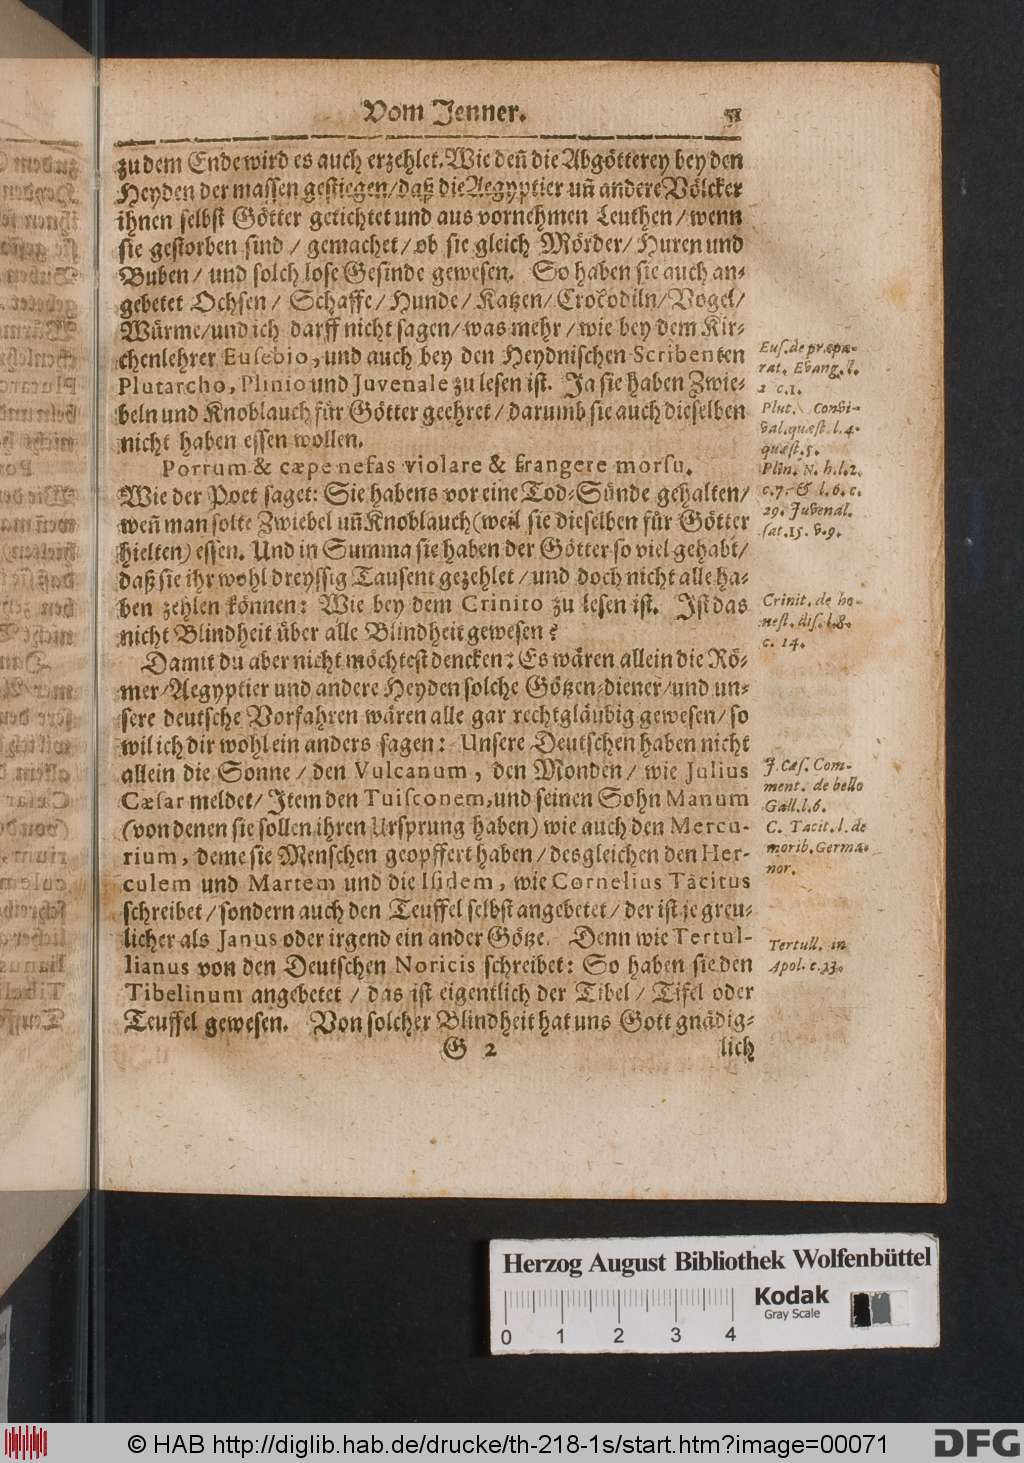 Vom Jenner. 51
zu dem Ende wird es auch erzehlet. Wie deñ die Abgötterey bey den
Heyden der massen gestiegen/ daß die Aegyptier uñ andere Völcker
ihnen selbst Götter getichtet und aus vornehmen Leuthen/ wenn
sie gestorben sind / gemachet/ ob sie gleich Mörder/ Huren und
Buben/ und solch lose Gesinde gewesen. So haben sie auch an-
gebetet Ochsen/ Schaffe/ Hunde/ Katzen/ Crocodiln/ Vogel/
Würme/ und ich darff nicht sagen/ was mehr / wie bey dem Kir-
chenlehrer Eusebio, und auch bey den Heydnischen Scribenten
Plutarcho, Plinio und Juvenale zu lesen ist. Ja sie haben Zwie-
beln und Knoblauch für Götter geehret/ darumb sie auch dieselben
nicht haben essen wollen.
Porrum & cæpe nefas violare & frangere morsu.
Wie der Poet saget: Sie habens vor eine Tod-Sünde gehalten/
weñ man solte Zwiebel uñ Knoblauch (weil sie dieselben für Götter
hielten) essen. Und in Summa sie haben der Götter so viel gehabt/
daß sie ihr wohl dreyssig Tausent gezehlet/ und doch nicht alle ha-
ben zehlen können: Wie bey dem Crinito zu lesen ist. Ist das
nicht Blindheit über alle Blindheit gewesen?
Damit du aber nicht möchtest dencken: Es wären allein die Rö-
mer/ Aegyptier und andere Heyden solche Götzen-diener/ und un-
sere deutsche Vorfahren wären alle gar rechtgläubig gewesen/ so
wil ich dir wohl ein anders sagen: Unsere Deutschen haben nicht
allein die Sonne/ den Vulcanum, den Monden/ wie Julius
Cæsar meldet/ Item den Tuisconem, und seinen Sohn Manum
(von denen sie sollen ihren Ursprung haben) wie auch den Mercu-
rium, deme sie Menschen geopffert haben/ desgleichen den Her-
culem und Martem und die Isidem, wie Cornelius Tacitus
schreibet/ sondern auch den Teuffel selbst angebetet/ der ist je greu-
licher als Janus oder irgend ein ander Götze. Denn wie Tertul-
lianus von den Deutschen Noricis schreibet: So haben sie den
Tibelinum angebetet / das ist eigentlich der Tibel/ Tifel oder
Teuffel gewesen. Von solcher Blindheit hat uns Gott gnädig-
G 2 lich
Eus. de præpa-
rat. Evang. l.
2 c.1.
Plut. Convi-
val. quæst. l. 4.
quæst. 5.
Plin. N. h. l. 2.
c. 7. & l. 6. c.
29. Juvenal.
sat. 15. v. 9.
Crinit. de ho-
nest. dis. l. 8.
c. 14.
J. Cæs. Com-
ment. de bello
Gall. l. 6.
C. Tacit. l. de
morib. Germa-
nor.
Tertull. in
Apol. c. 23.
Herzog August Bibliothek Wolfenbüttel
Kodak
Gray Scale
0 1 2 3 4
© HAB http://diglib.hab.de/drucke/th-218-1s/start.htm?image=00071
DFG